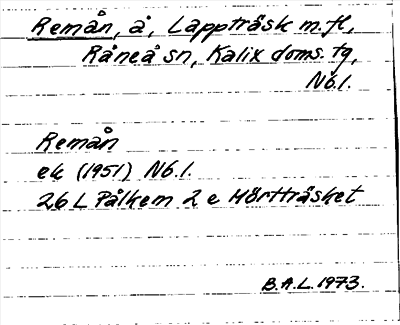 Remån, å, Lappträsk m.fl,
Råneå sn, Kalix doms. tg,
Nb.l.
Remån
ek (1951) Nb.l.
26 L Pålkem 2 e Mörtträsket
B.A.L. 1973.